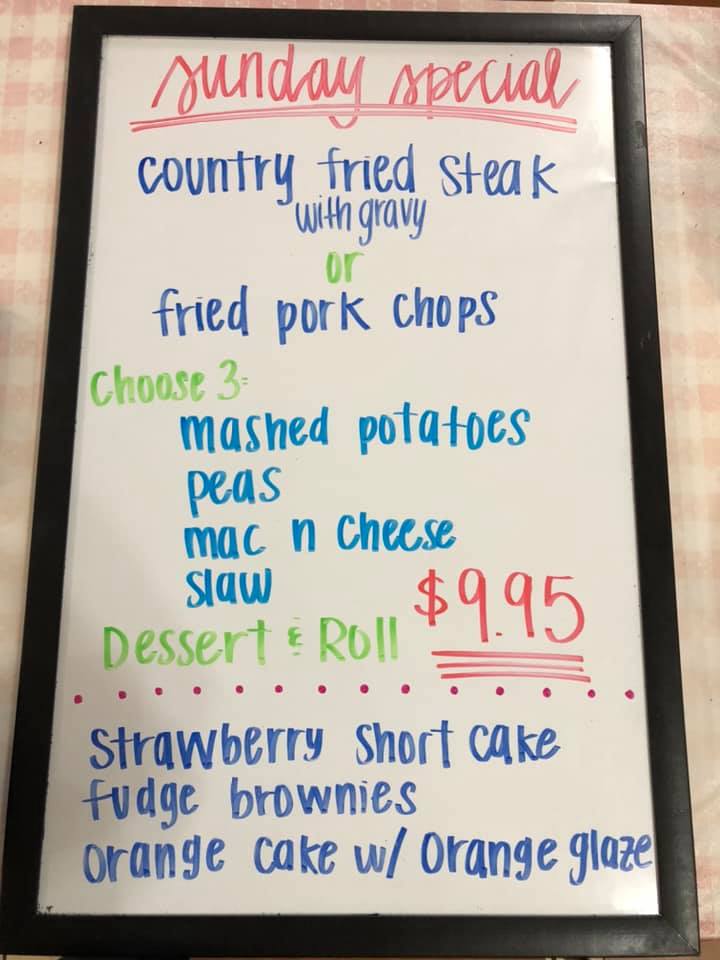 sunday special
country fried steak
with gravy
or
fried pork chops
Choose 3:
mashed potatoes
peas
mac n cheese
slaw
$9.95
Dessert & Roll
Strawberry Short cake
fudge brownies
Orange cake w/ Orange glaze